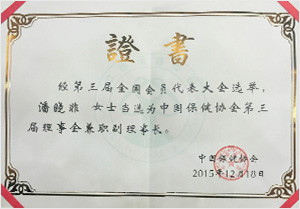 證書
经第三届全国会员代表大会选举，
潘晓非 女士当选为中国保健协会第三
届理事会兼职副理事长。
中国保健协会
2015年12月18日